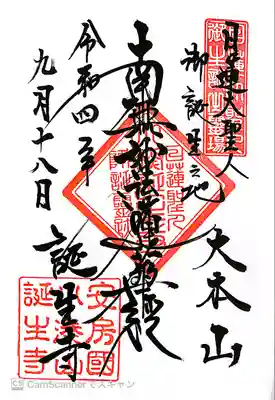 日蓮大聖人
御誕生之地
大本山
南無妙法蓮華経
令和四年
九月十八日
誕生寺
安房國
小湊山
誕生寺
CS CamScannerでスキャン